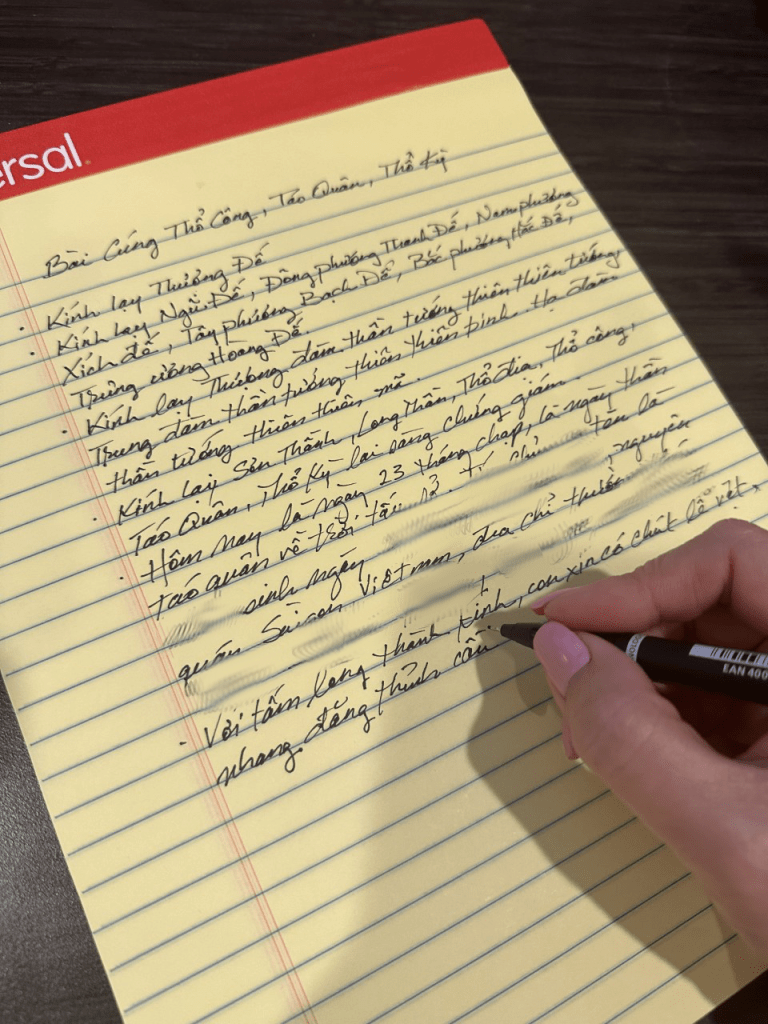 ersal
Bài Cúng Thổ Công, Táo Quân, Thổ Kỳ
• Kính lạy Thượng Đế
• Kính lạy Ngũ Đế, Đông phương Thanh Đế, Nam phương
Xích đế, Tây phương Bạch Đế, Bắc phương Hắc Đế,
Trung ương Hoàng Đế.
• Kính lạy Thượng đàm thần tướng thiên thiên tướng,
Trung đàm thần tướng thiên thiên binh. Hạ đàm
thần tướng thiên thiên mã.
• Kính lạy Sơn Thành, Long Thần, Thổ địa, Thổ công,
Táo Quân, Thổ Kỳ lai sàng chứng giám.
• Hôm nay là ngày 23 tháng chạp, là ngày thần
táo quân về trời tấu sớ. tên là
sinh ngày , nguyên
quán Sàigon Việt nam, địa chỉ thường
• Với tấm lòng thành kính, con xin có chút lễ vật,
nhang đăng thỉnh cầu
EAN 400